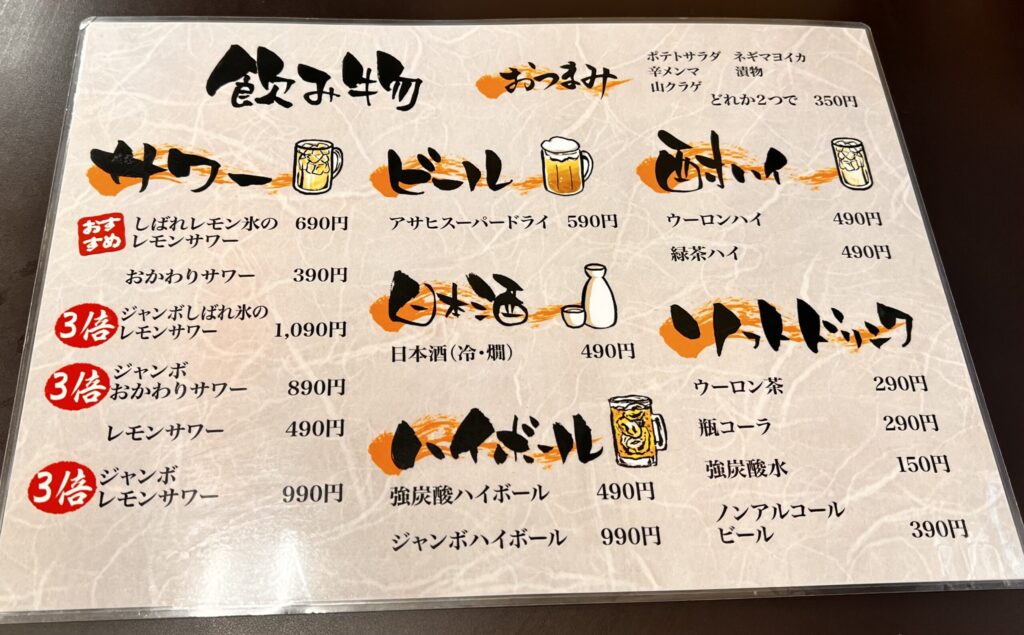 飲み物
おつまみ
ポテトサラダ ネギマヨイカ
辛メンマ 漬物
山クラゲ
どれか2つで 350円
サワー
おすすめ
しばれレモン氷の
レモンサワー 690円
おかわりサワー 390円
3倍
ジャンボしばれ氷の
レモンサワー 1,090円
3倍
ジャンボ
おかわりサワー 890円
レモンサワー 490円
3倍
ジャンボ
レモンサワー 990円
ビール
アサヒスーパードライ 590円
日本酒
日本酒(冷・燗) 490円
ハイボール
強炭酸ハイボール 490円
ジャンボハイボール 990円
酎ハイ
ウーロンハイ 490円
緑茶ハイ 490円
ソフトドリンク
ウーロン茶 290円
瓶コーラ 290円
強炭酸水 150円
ノンアルコール
ビール 390円